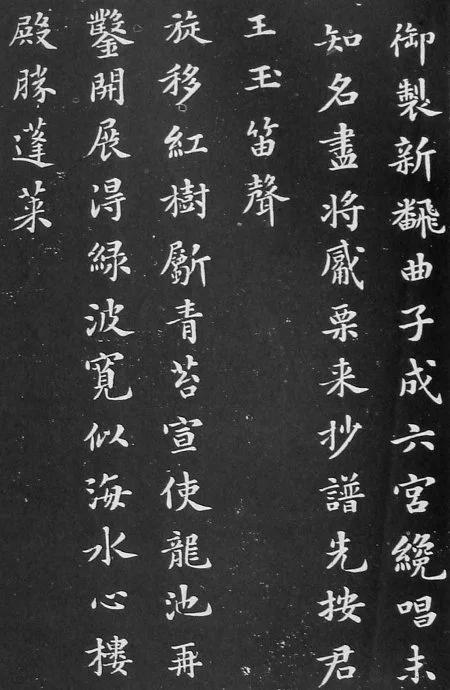 御製新飜曲子成六宮纔唱未
知名盡將觱栗来抄譜先按君
王玉笛聲
旋移紅樹斸青苔宣使龍池再
鑿開展淂緑波寬似海水心樓
殿勝蓬萊